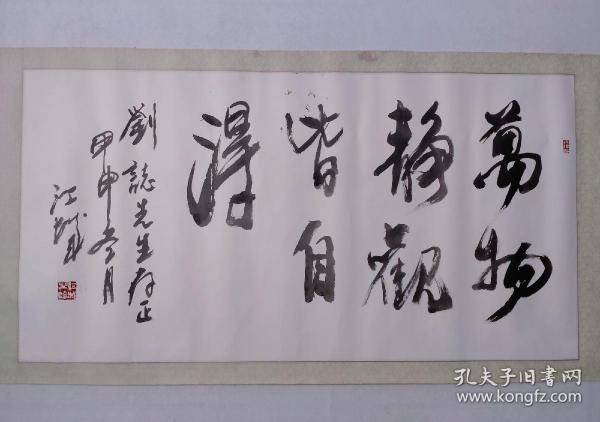 萬物
靜觀
皆自
得
劉誌先生存正
甲申冬月
孔夫子旧書网
www.kongfz.com